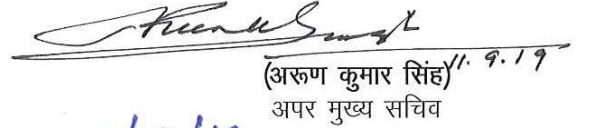 (अरुण कुमार सिंह) 11.9.19
अपर मुख्य सचिव